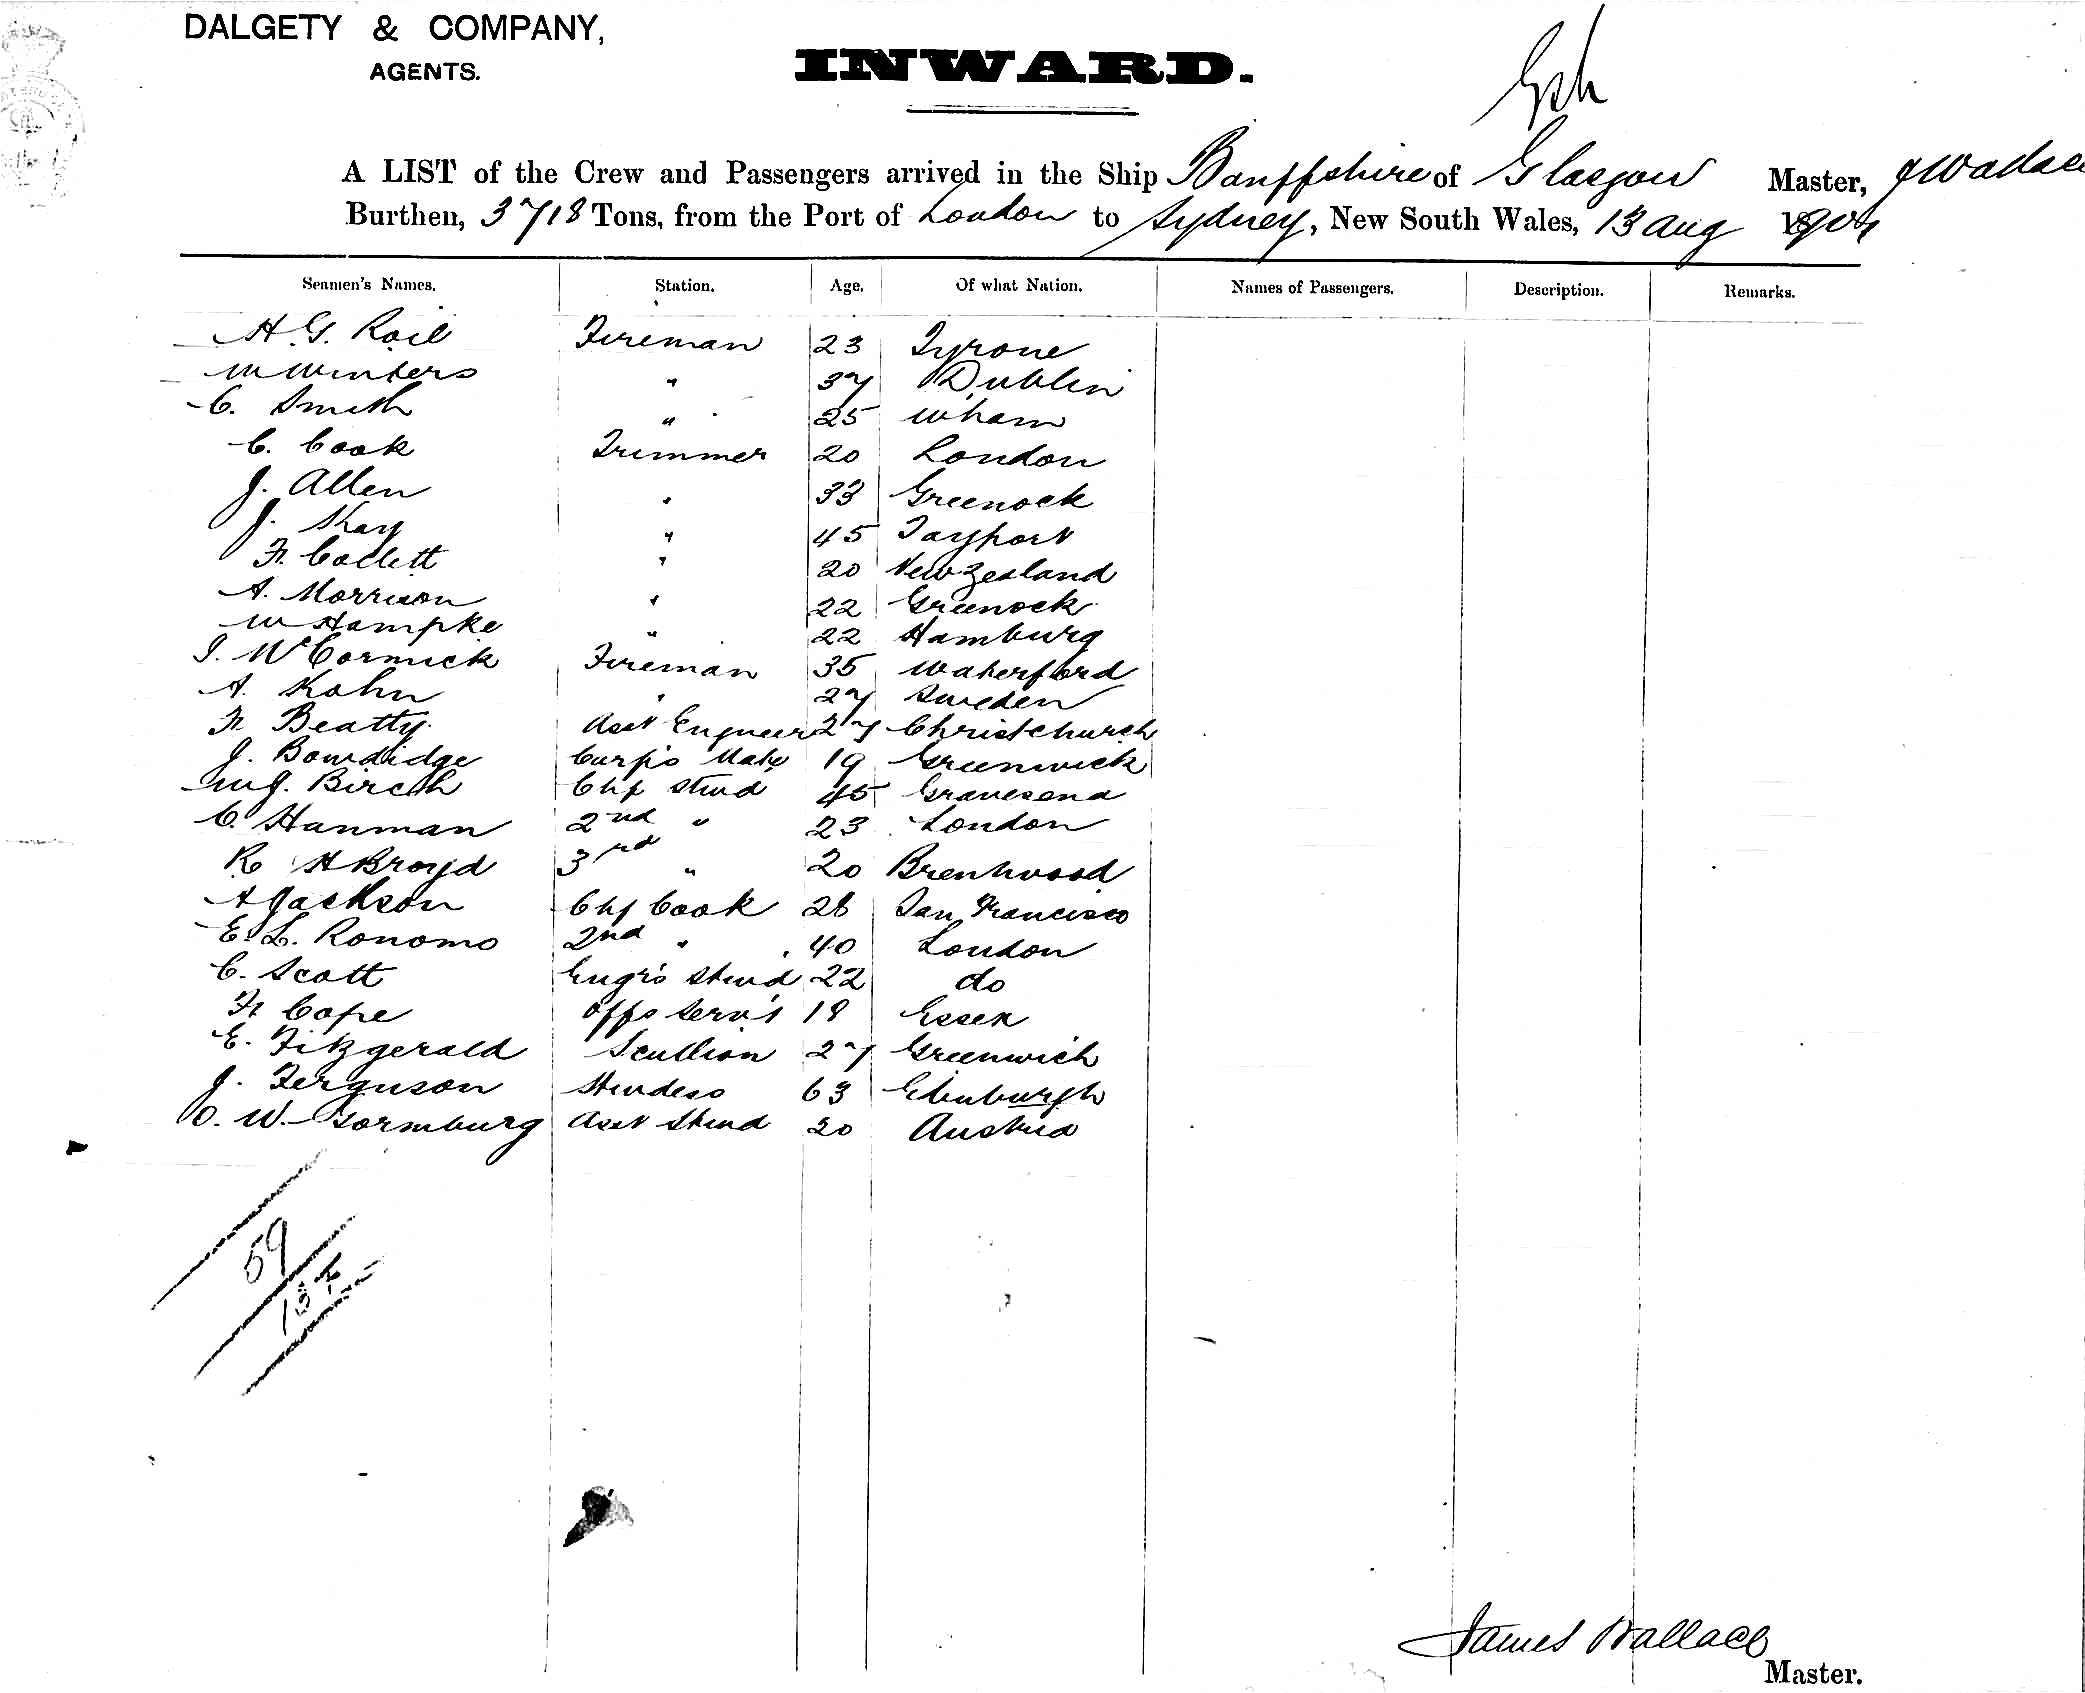 DALGETY & COMPANY,
AGENTS.
INWARD.
A LIST of the Crew and Passengers arrived in the Ship Banffshire of Glasgow Master, J Wallace
Burthen, 3718 Tons, from the Port of London to Sydney, New South Wales, 13 Aug 1904
Seamen's Names. Station. Age. Of what Nation. Names of Passengers. Description. Remarks.
H. G. Roil Fireman 23 Tyrone
W Winters " 37 Dublin
C. Smith " 25 Wham
C. Cook Trimmer 20 London
J. Allen " 33 Greenock
J. Kay " 45 Tayport
Fr Collett " 20 New Zealand
A. Morrison " 22 Greenock
W Hampke " 22 Hamburg
J. McCormick Fireman 35 Waterford
A. Kohn " 27 Sweden
Fr Beatty Asst Engineer 27 Christchurch
J. Bowdidge Carp's Mate 19 Greenwich
Wm J. Birch Chf Stwd 45 Gravesend
C. Hanman 2nd " 23 London
R H Broyd 3rd " 20 Brentwood
A Jackson Chf Cook 28 San Francisco
E. L. Ronomo 2nd " 40 London
C. Scott Engr's Stwd 22 do
Fr Cope Offs Serv't 18 Essex
E. Fitzgerald Scullion 27 Greenwich
J. Ferguson Stwdess 63 Edinburgh
O. W. Asst Stwd 20 Austria
59
James Wallace
Master.